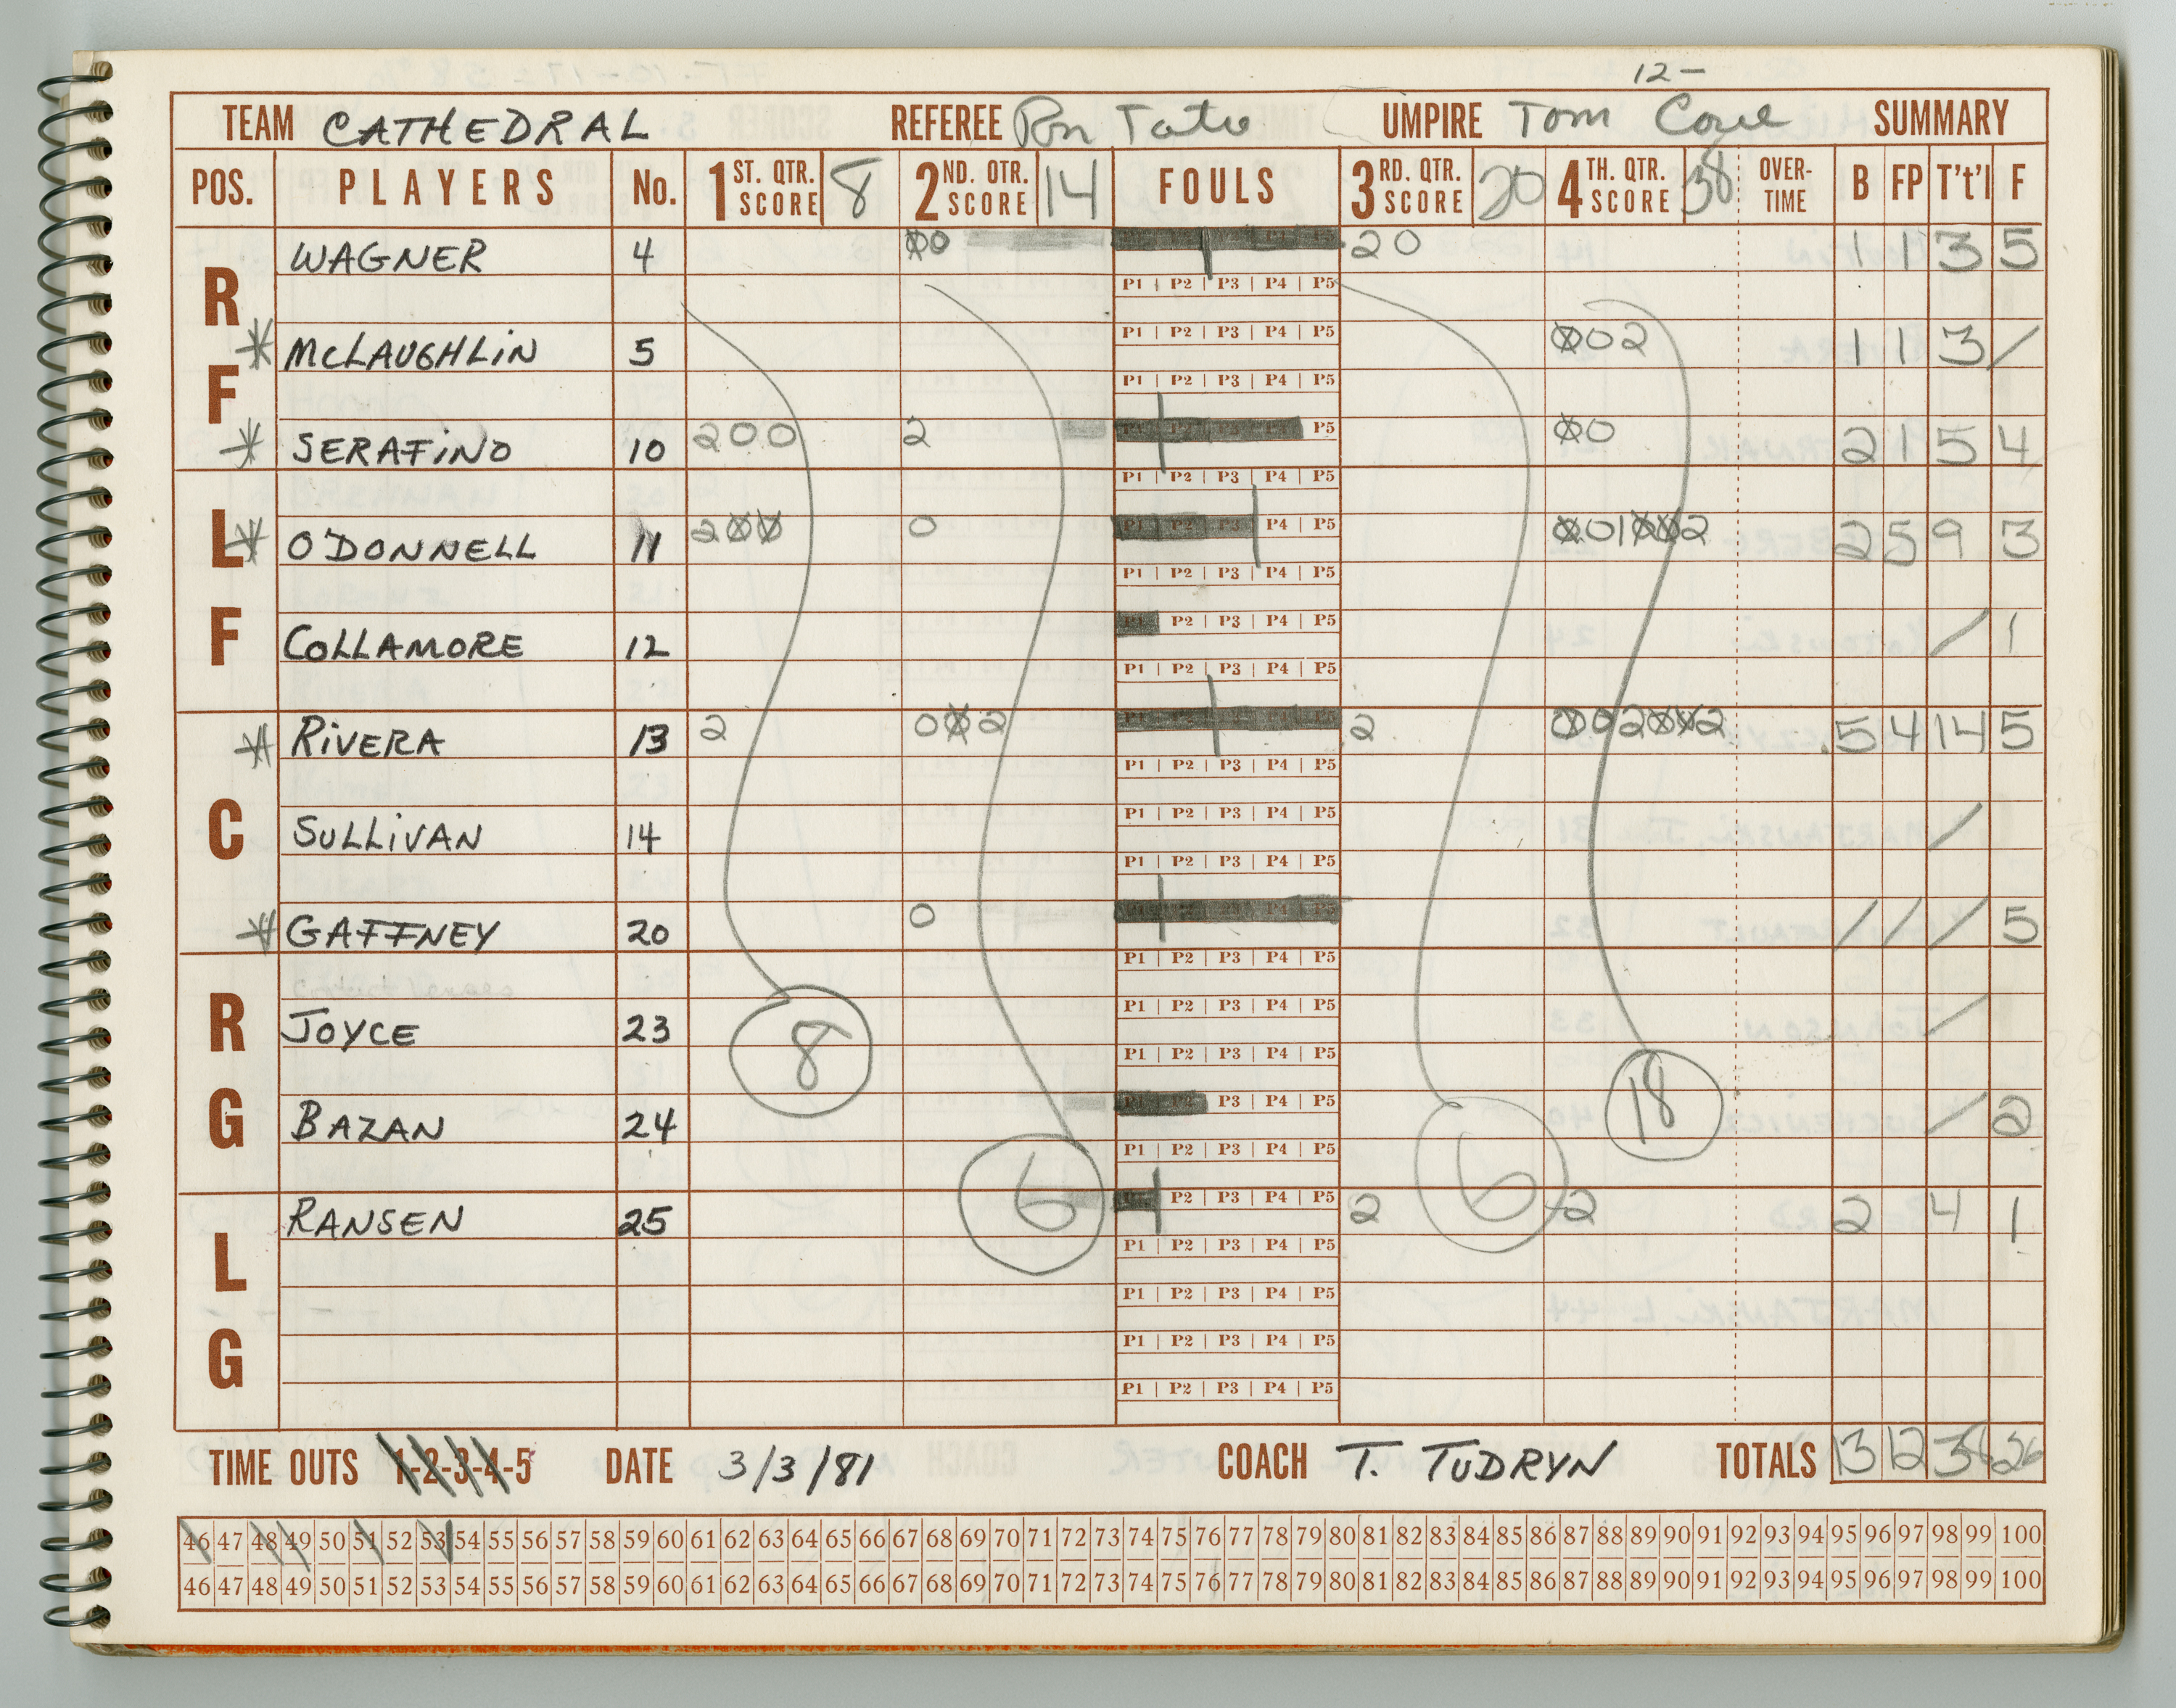 12-
TEAM CATHEDRAL REFEREE Ron Tate UMPIRE Tom SUMMARY
POS. PLAYERS No. 1ST. QTR. SCORE 8 2ND. QTR. SCORE 14 FOULS 3RD. QTR. SCORE 20 4TH. QTR. SCORE 38 OVER-TIME B FP T't'l F
WAGNER 4 00 P5 20 1 1 3 5
RF
P1 | P2 | P3 | P4 | P5
P1 | P2 | P3 | P4 | P5
McLAUGHLIN 5 002 1 1 3 /
P1 | P2 | P3 | P4 | P5
SERAFINO 10 200 2 P5 00 2 1 5 4
LF
P1 | P2 | P3 | P4 | P5
O'DONNELL 11 200 0 P1 P2 P3 | P4 | P5 001002 2 5 9 3
P1 | P2 | P3 | P4 | P5
COLLAMORE 12 P1 | P2 | P3 | P4 | P5 / 1
P1 | P2 | P3 | P4 | P5
RIVERA 13 2 002 2 002002 5 4 14 5
C
P1 | P2 | P3 | P4 | P5
P1 | P2 | P3 | P4 | P5
SULLIVAN 14 /
P1 | P2 | P3 | P4 | P5
GAFFNEY 20 0 / / / 5
RG
P1 | P2 | P3 | P4 | P5
P1 | P2 | P3 | P4 | P5
JOYCE 23 8 /
P1 | P2 | P3 | P4 | P5
18
BAZAN 24 P1 P2 | P3 | P4 | P5 / 2
P1 | P2 | P3 | P4 | P5
LG
RANSEN 25 6 P1 | P2 | P3 | P4 | P5 2 6 2 2 4 1
P1 | P2 | P3 | P4 | P5
P1 | P2 | P3 | P4 | P5
P1 | P2 | P3 | P4 | P5
P1 | P2 | P3 | P4 | P5
TIME OUTS 1-2-3-4-5 DATE 3/3/81 COACH T. TUDRYN TOTALS 13 12 38 26
46 47 48 49 50 51 52 53 54 55 56 57 58 59 60 61 62 63 64 65 66 67 68 69 70 71 72 73 74 75 76 77 78 79 80 81 82 83 84 85 86 87 88 89 90 91 92 93 94 95 96 97 98 99 100
46 47 48 49 50 51 52 53 54 55 56 57 58 59 60 61 62 63 64 65 66 67 68 69 70 71 72 73 74 75 76 77 78 79 80 81 82 83 84 85 86 87 88 89 90 91 92 93 94 95 96 97 98 99 100